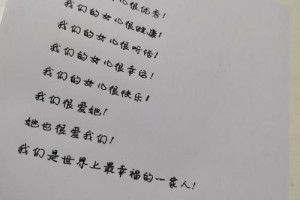 我们的女儿很优秀!
我们的女儿很健康!
我们的女儿很听话!
我们的女儿很幸运!
我们的女儿很快乐!
我们很爱她!
她也很爱我们!
我们是世界上最幸福的一家人!